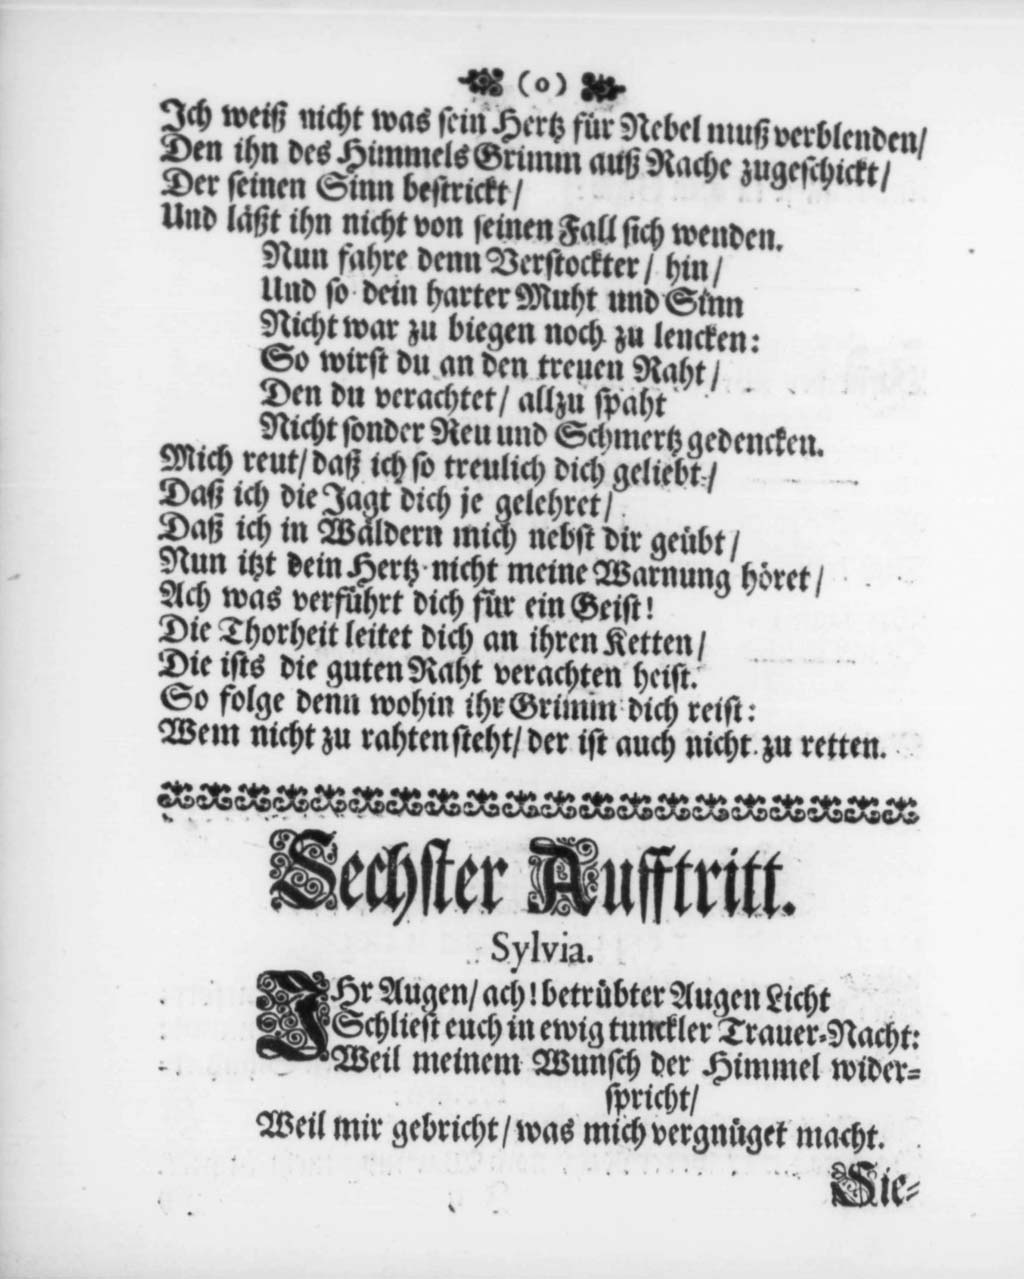 (o)
Ich weiß nicht was sein Hertz für Nebel muß verblenden/
Den ihn des Himmels Grimm auß Rache zugeschickt/
Der seinen Sinn bestrickt/
Und läßt ihn nicht von seinen Fall sich wenden.
Nun fahre denn Verstockter/ hin/
Und so dein harter Muht und Sinn
Nicht war zu biegen noch zu lencken:
So wirst du an den treuen Raht/
Den du verachtet/ allzu spaht
Nicht sonder Reu und Schmertz gedencken.
Mich reut/ daß ich so treulich dich geliebt/
Daß ich die Jagt dich je gelehret/
Daß ich in Wäldern mich nebst dir geübt/
Nun itzt dein Hertz nicht meine Warnung höret/
Ach was verführt dich für ein Geist!
Die Thorheit leitet dich an ihren Ketten/
Die ists die guten Raht verachten heist.
So folge denn wohin ihr Grimm dich reist:
Wem nicht zu rahten steht/ der ist auch nicht zu retten.
Sechster Aufftritt.
Sylvia.
IHr Augen/ ach! betrübter Augen Licht
Schliest euch in ewig tunckler Trauer-Nacht:
Weil meinem Wunsch der Himmel wider-
spricht/
Weil mir gebricht/ was mich vergnüget macht.
Sie-